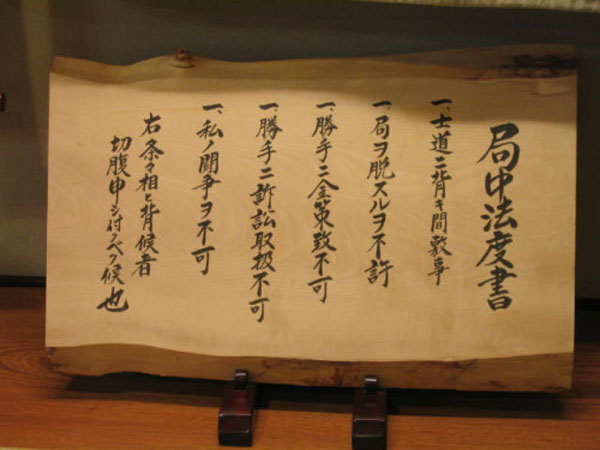 局中法度書
一、士道ニ背キ間敷事
一、局ヲ脱スルヲ不許
一、勝手ニ金策致不可
一、勝手ニ訴訟取扱不可
一、私ノ闘争ヲ不可
右条々相ヒ背候者
切腹申シ付クベク候也